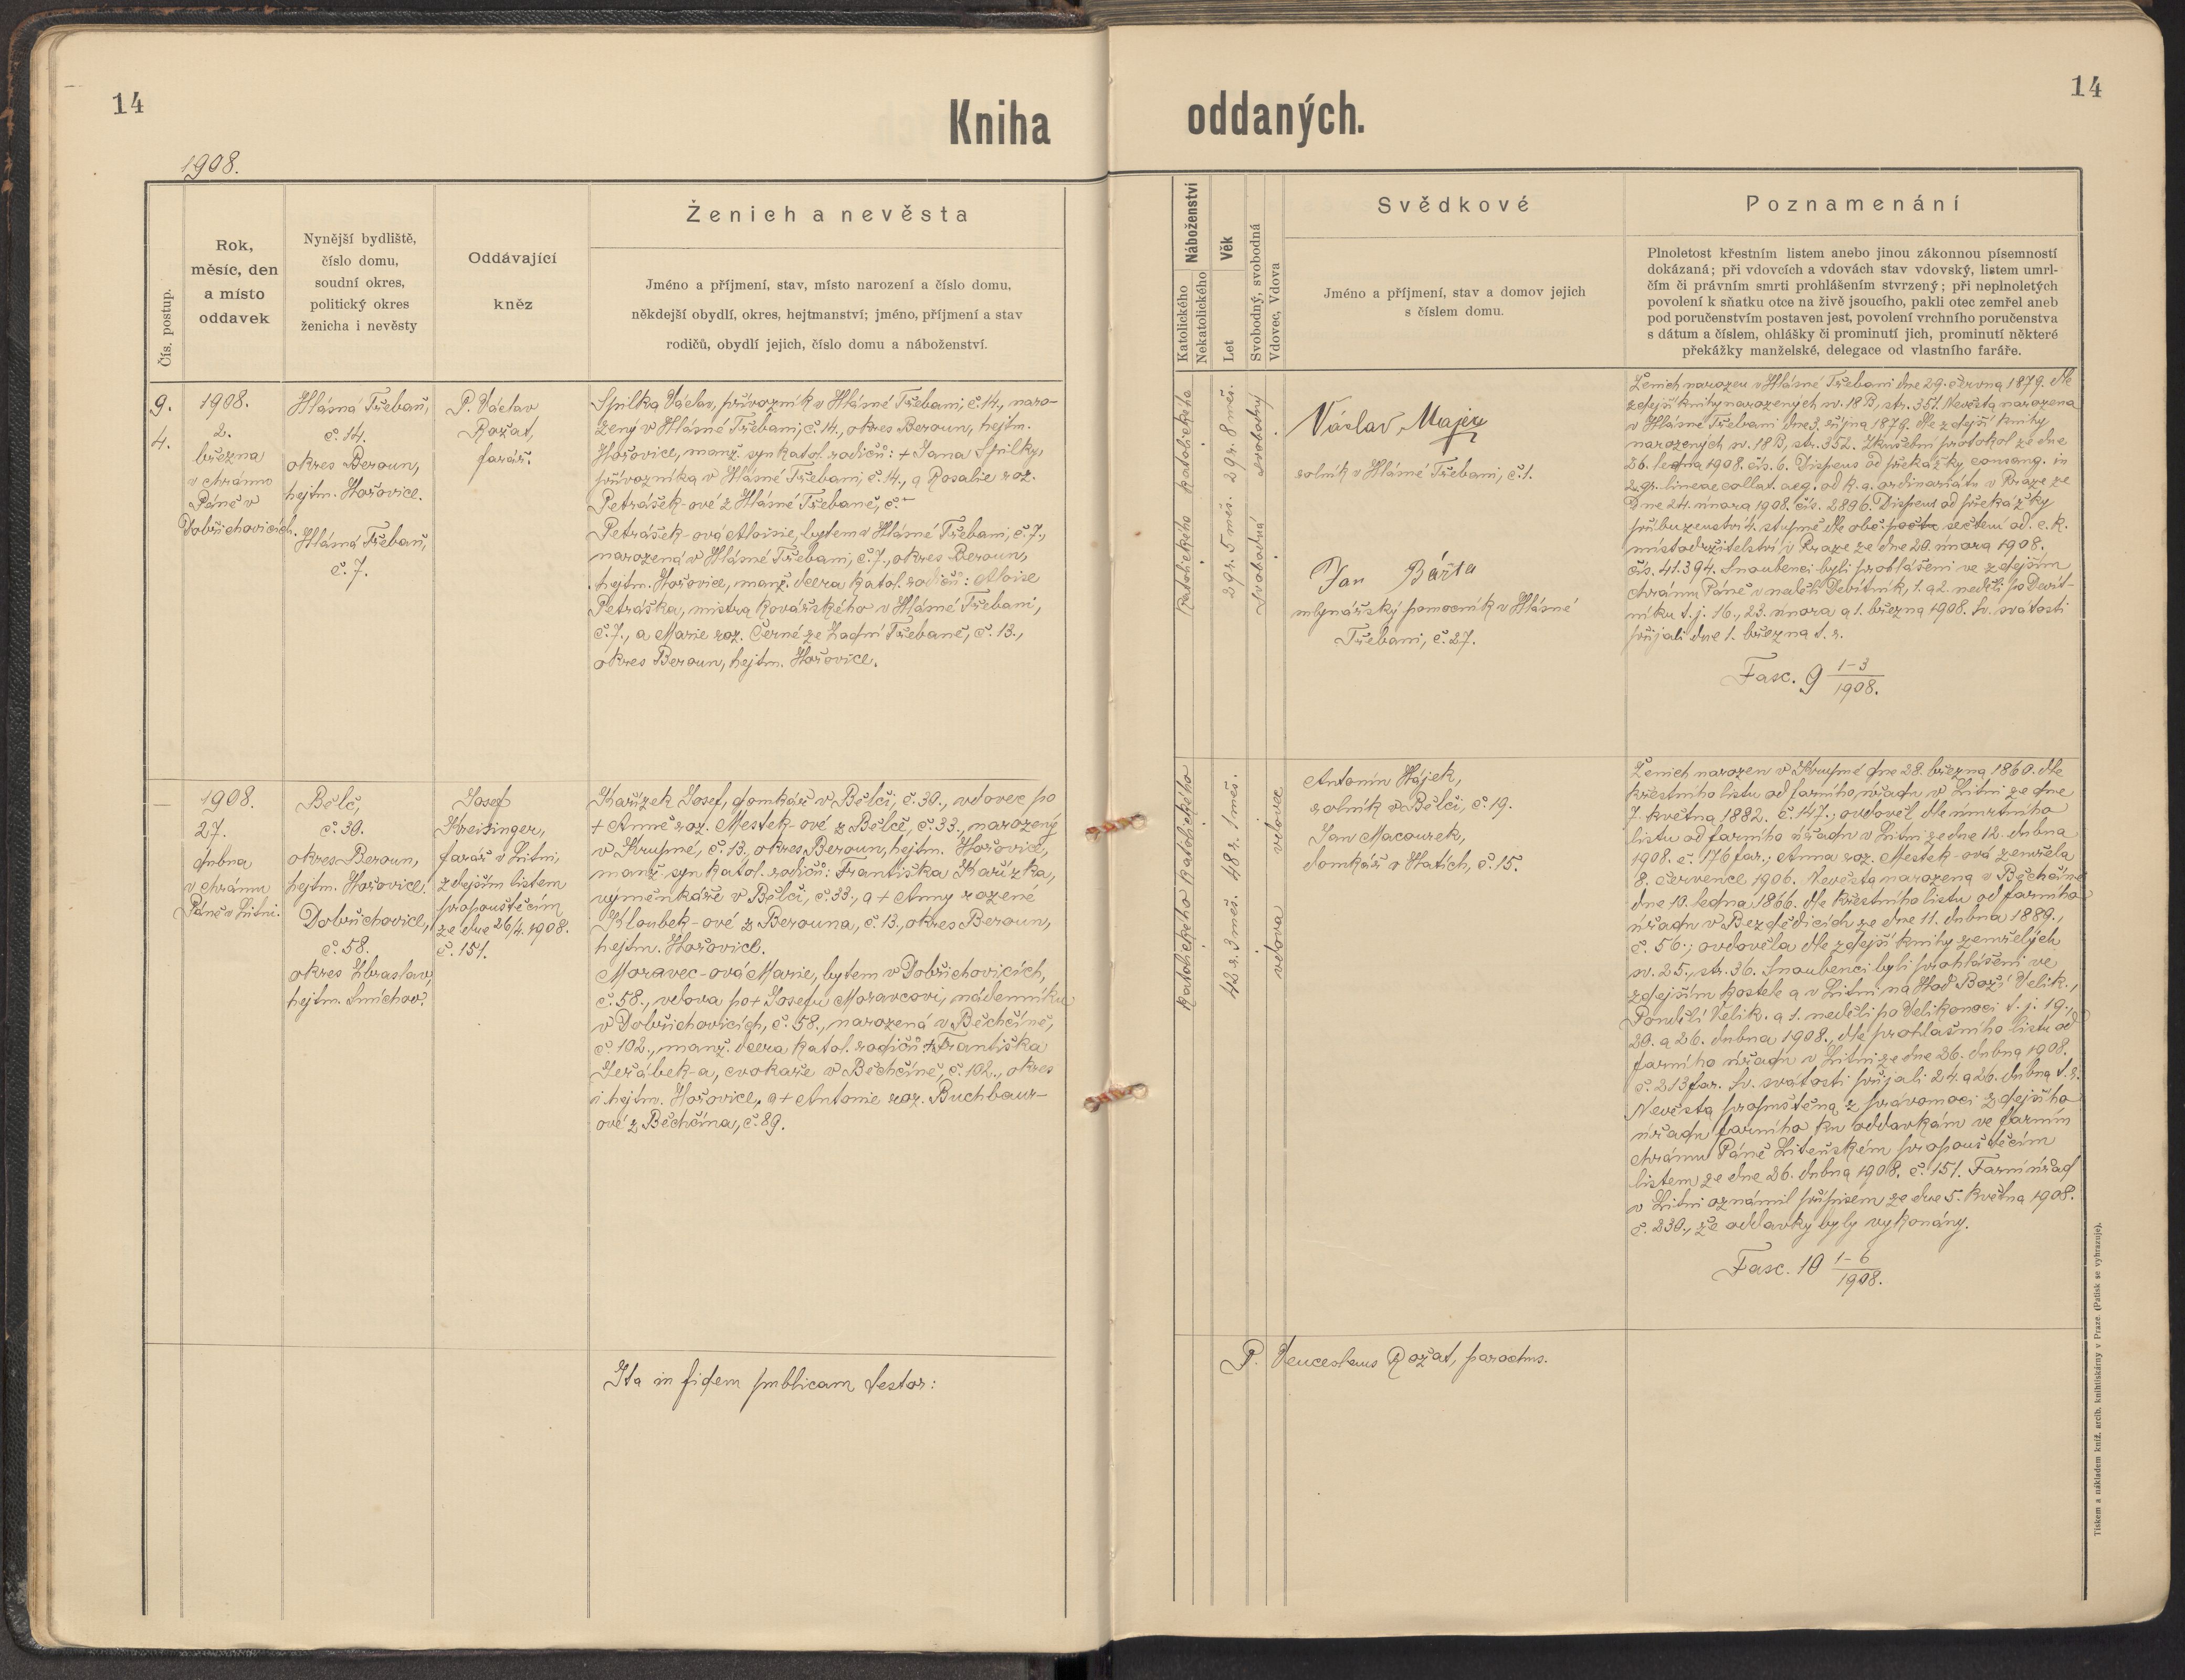 14
14
Kniha oddaných.
1908.
Čís. postup.
Rok,
měsíc, den
a místo
oddavek
Nynější bydliště,
číslo domu,
soudní okres,
politický okres
ženicha i nevěsty
Oddávající
kněz
Ženich a nevěsta
Jméno a příjmení, stav, místo narození a číslo domu,
někdejší obydlí, okres, hejtmanství; jméno, příjmení a stav
rodičů, obydlí jejich, číslo domu a náboženství.
Náboženství
Katolického
Nekatolického
Věk
Let
Svobodný, svobodná
Vdovec, Vdova
Svědkové
Jméno a příjmení, stav a domov jejich
s číslem domu.
Poznamenání
Plnoletost křestním listem anebo jinou zákonnou písemností
dokázaná; při vdovcích a vdovách stav vdovský, listem umrl-
čím či právním smrti prohlášením stvrzený; při neplnoletých
povolení k sňatku otce na živě jsoucího, pakli otec zemřel aneb
pod poručenstvím postaven jest, povolení vrchního poručenstva
s dátum a číslem, ohlášky či prominutí jich, prominutí některé
překážky manželské, delegace od vlastního faráře.
9.
4.
1908.
2.
března
v chrámu
Páně v
Dobřichovicích.
Hlásná Třebaň,
č. 14.
okres Beroun,
hejtm. Hořovice.
Hlásná Třebaň,
č. 7.
P. Václav
Rožat,
farář.
Spilka Václav, přívozník v Hlásné Třebani, č. 14., naro-
zený v Hlásné Třebani, č. 14., okres Beroun, hejtm.
Hořovice, manž. syn katol. rodičů: + Jana Spilky,
přívozníka v Hlásné Třebani, č. 14., a Rosalie roz.
Petrášek-ové z Hlásné Třebaně, č. –
Petrášek-ová Aloisie, bytem v Hlásné Třebani, č. 7.,
narozená v Hlásné Třebani, č. 7., okres Beroun,
hejtm. Hořovice, manž. dcera katol. rodičů: Aloise
Petráška, mistra kovářského v Hlásné Třebani,
č. 7., a Marie roz. Černé ze Zadní Třebaně, č. 13.,
okres Beroun, hejtm. Hořovice.
katolického katolického
29 r. 5 měs. 29 r. 8 měs.
svobodná svobodný
Václav Majer
rolník v Hlásné Třebani, č. 1.
Jan Bárta
mlynářský pomocník v Hlásné
Třebani, č. 27.
Ženich narozen v Hlásné Třebani dne 29. června 1879. dle
zdejší knihy narozených sv. 18 B, str. 351. Nevěsta narozena
v Hlásné Třebani dne 3. října 1879. dle zdejší knihy
narozených sv. 18 B, str. 352. Zkušební protokol ze dne
26. ledna 1908. čís. 6. Dispens od překážky consang. in
2. gr. lineae collat. aeq. od k. a. ordinariátu v Praze ze
dne 24. února 1908. čís. 2896. Dispens od překážky
příbuzenství 4. stupně dle obč. sečtení od c. k.
místodržitelství v Praze ze dne 20. února 1908.
čís. 41.394. Snoubenci byli prohlášeni ve zdejším
chrámu Páně v neděli Devítník, 1. a 2. neděli po Devít-
níku t. j. 16., 23. února a 1. března 1908. Sv. svátosti
přijali dne 1. března t. r.
Fasc. 9 1–3/1908.
—
1908.
27.
dubna
v chrámu
Páně v Litni.
Běleč,
č. 30.
okres Beroun,
hejtm. Hořovice.
Dobřichovice,
č. 58.
okres Zbraslav,
hejtm. Smíchov.
Josef
Kreisinger,
farář v Litni,
zdejším listem
propouštěcím
ze dne 26/4. 1908.
č. 151.
Kařízek Josef, domkář v Bělči, č. 30., vdovec po
+ Anně roz. Mestek-ové z Bělče, č. 33., narozený
v Krupné, č. 13., okres Beroun, hejtm. Hořovice,
manž. syn katol. rodičů: Františka Kařízka,
výměnkáře v Bělči, č. 33., a + Anny rozené
Kloubek-ové z Berouna, č. 13., okres Beroun,
hejtm. Hořovice.
Moravec-ová Marie, bytem v Dobřichovicích,
č. 58., vdova po + Josefu Moravcovi, nádenníku
v Dobřichovicích, č. 58., narozená v Běchčíně,
č. 102., manž. dcera katol. rodičů: + Františka
Jeřábek-a, cvokaře v Běchčíně, č. 102., okres
i hejtm. Hořovice, a + Antonie roz. Buchbaur-
ové z Běchčína, č. 89.
katolického katolického
42 r. 3 měs. 48 r. 1 měs.
vdova vdovec
Antonín Hájek,
rolník v Bělči, č. 19.
Jan Macourek,
domkář v Hatích, č. 15.
Ženich narozen v Krupné dne 28. března 1860. dle
křestního listu od farního úřadu v Litni ze dne
7. května 1882. č. 147.; ovdověl dle úmrtního
listu od farního úřadu v Litni ze dne 12. dubna
1908. č. 176 far.; Anna roz. Mestek-ová zemřela
8. července 1906. Nevěsta narozena v Běchčíně
dne 10. ledna 1866. dle křestního listu od farního
úřadu v Bezdědicích ze dne 11. dubna 1889.,
č. 56.; ovdověla dle zdejší knihy zemřelých
sv. 25., str. 36. Snoubenci byli prohlášeni ve
zdejším kostele a v Litni na Hod Boží Velik.,
Pondělí Velik. a 1. neděli po Velikonoci t. j. 19.,
20. a 26. dubna 1908., dle prohlašního listu od
farního úřadu v Litni ze dne 26. dubna 1908.
č. 213 far. Sv. svátosti přijali 24. a 26. dubna t. r.
Nevěsta propuštěna z právomoci zdejšího
úřadu farního ku oddavkám ve farním
chrámu Páně Liteňském propouštěcím
listem ze dne 26. dubna 1908. č. 151. Farní úřad
v Litni oznámil přípisem ze dne 5. května 1908.
č. 230., že oddavky byly vykonány.
Fasc. 10 1–6/1908.
Ita in fidem publicam testor:
P. Venceslaus Rožat, parochus.
Tiskem a nákladem kníž. arcib. knihtiskárny v Praze. (Patisk se vyhrazuje).